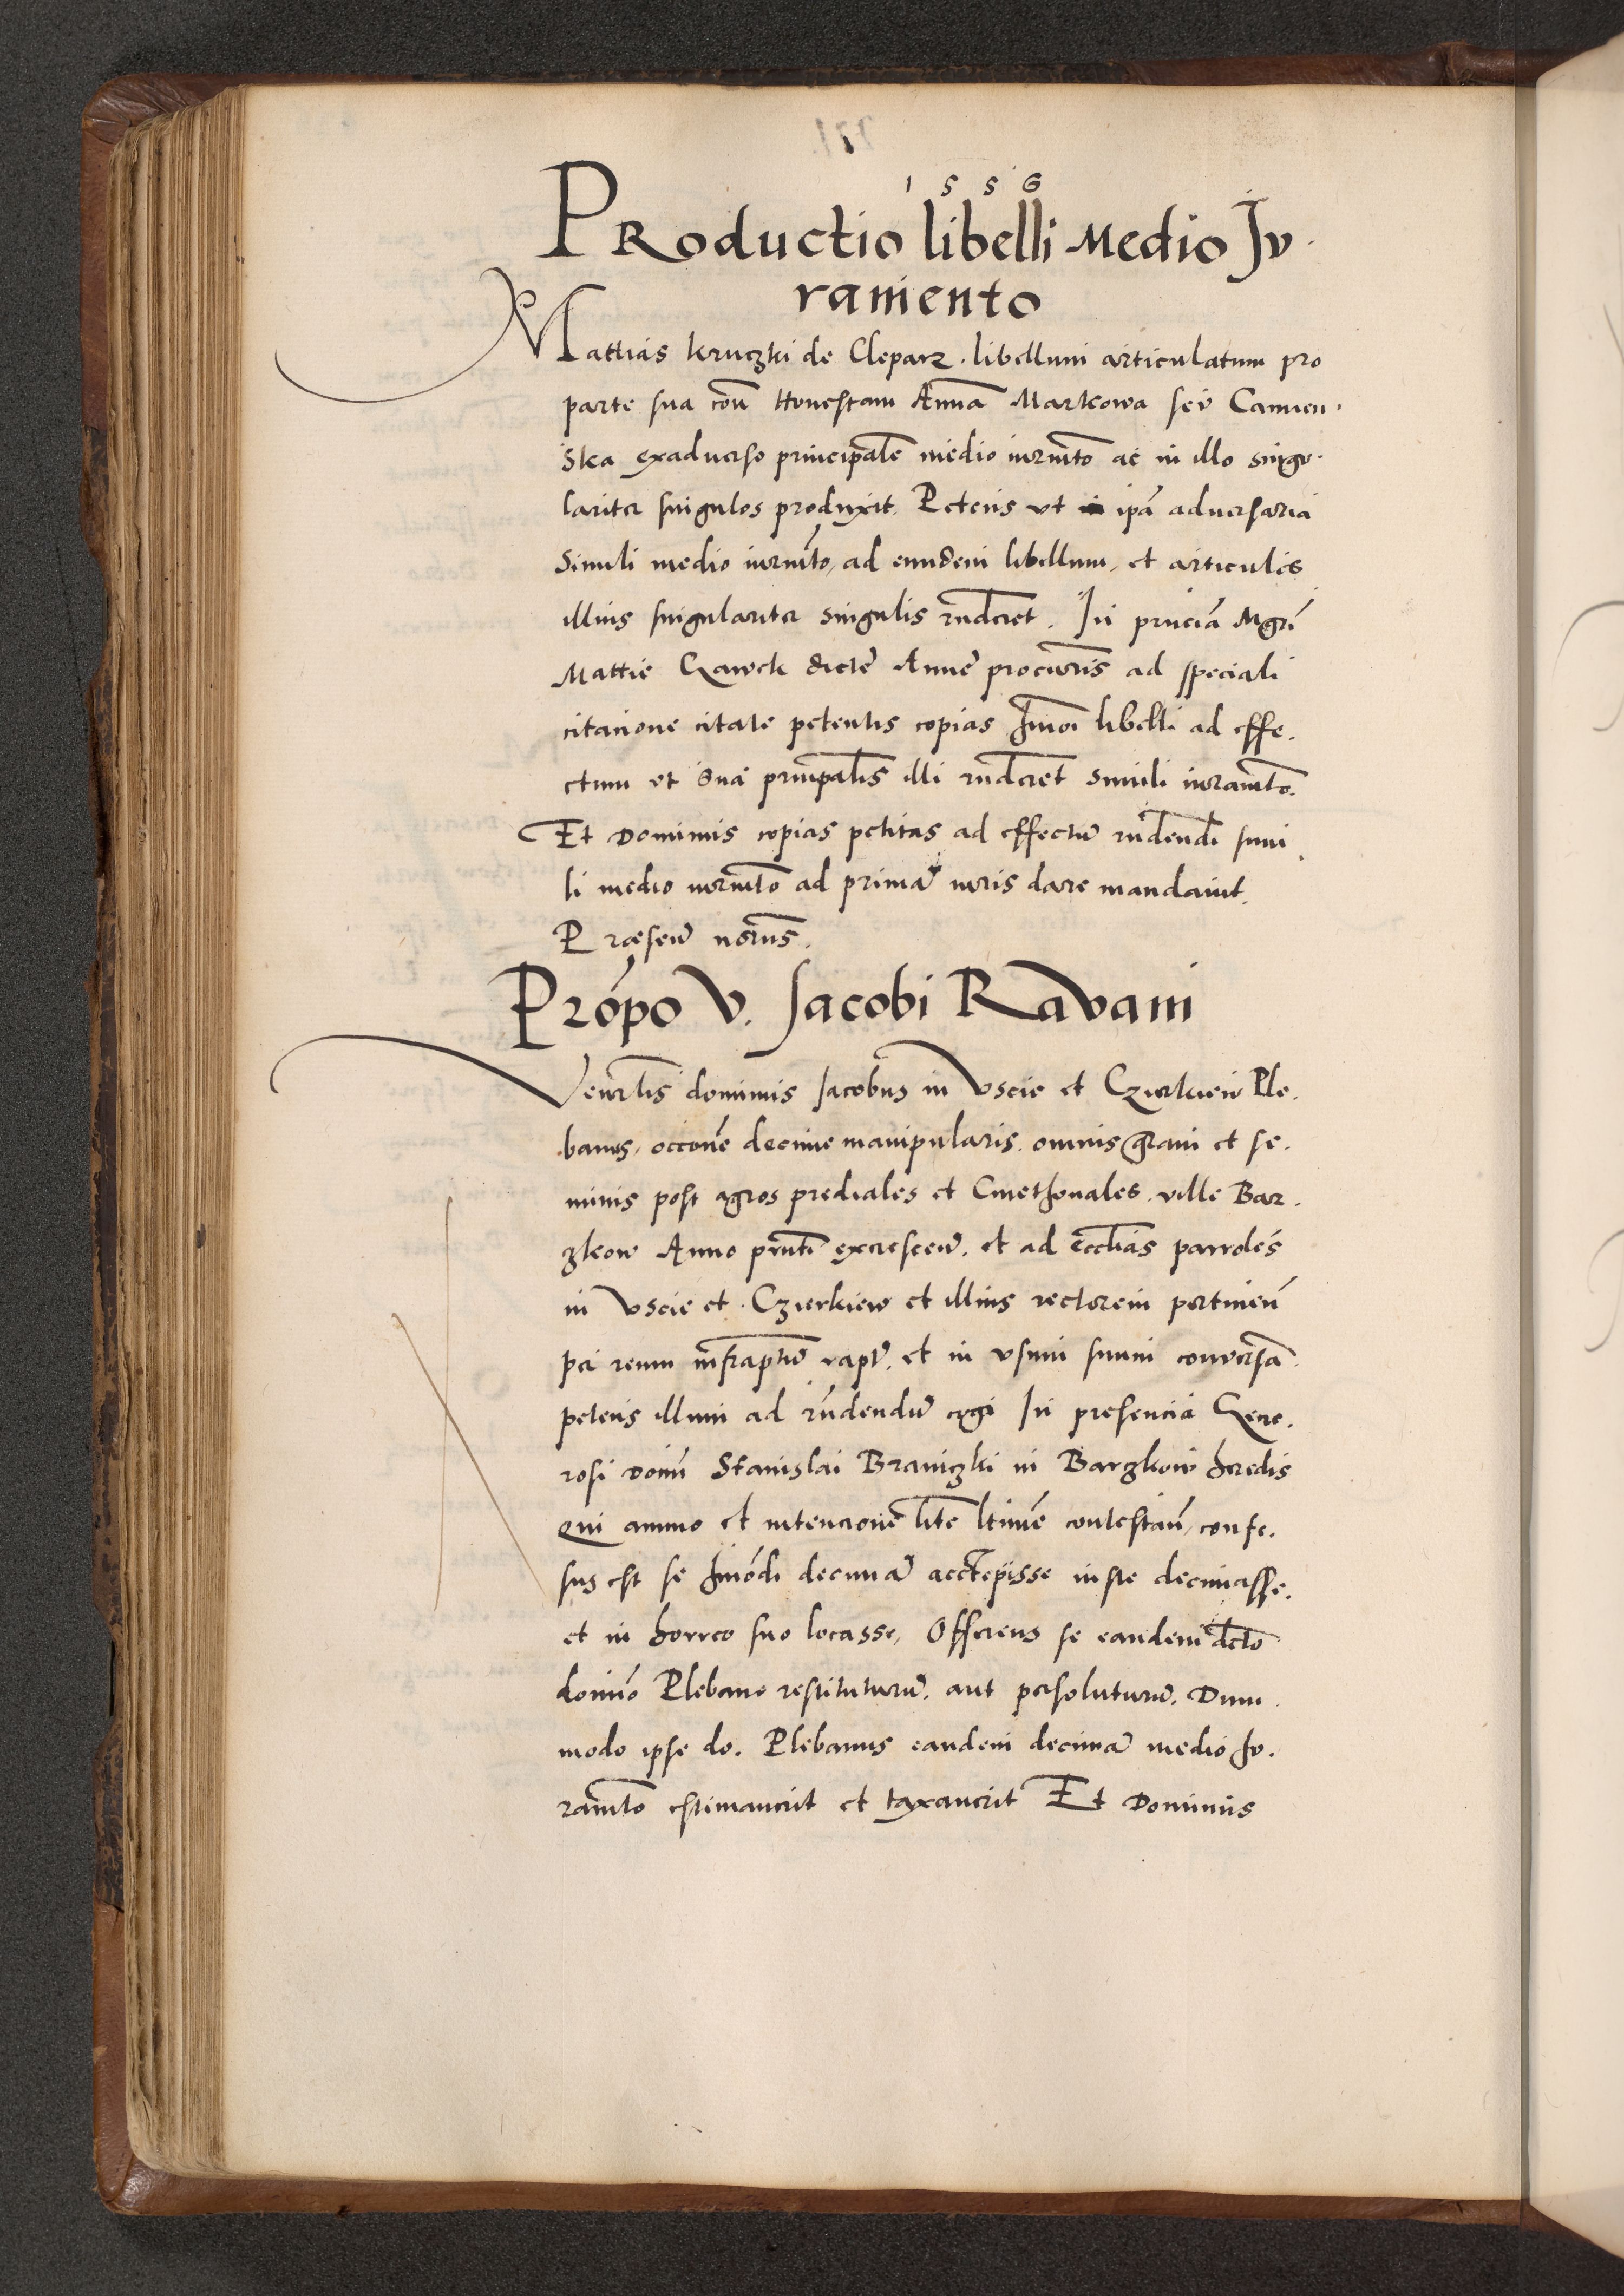 1556
Productio libelli Medio Ju.
ramento
Mattias Kruczki de Clepar. libellum articulatum pro
parte sua coñ Honestam Annã Markowa seu Camien.
Ska exaduerso principalẽ medio iurmto ac in illo singu.
lariter singulos produxit. Petens vt ipã aduersaria
Simili medio iurmto, ad eundem libellum, et articulis
illius singulariter singulis rñderet. In pñciã Mgri
Mattie Gawek dicte Anne procuris ad speciali
citacione citate petentis copias hmoi libelli ad effe.
ctum et sua principalis illi rñderet simili iuramto.
Et Dominus copias petitas ad effectũ rñdendi simi
li medio iurmto ad primã iuris dare mandauit.
Præsen̄ notrijs.
Propo v. Jacobi Ravani
Venerlis dominus Jacobus in Vscie et Czirkiew Ple.
banus, occõne decime manipularis. omnis grani et se.
minis post agros prediales et Cmethonales. ville Bar.
zkow Anno pñti excrescen̄. et ad ecclias parroles
in Vscie et Czierkiew et illius rectorem pertinen̄
per reum infrascptũ rapt. et in vsum suum conuersã
petens illum ad rñdendũ cogi In presencia Gene.
rosi Domi Stanislai Braniczki in Barzkow heredis
qui animo et intencione lite ltime contestan̄, confe.
sus est se hmõdi decimã accepisse iuste decimasse.
et in horreo suo locasse, Offerens se eandem dcto
domio Plebano restituturũ. aut persoluturũ. Dum.
modo ipse do. Plebanus eandem decimã medio Ju.
ramto estimauerit et taxauerit Et Dominus